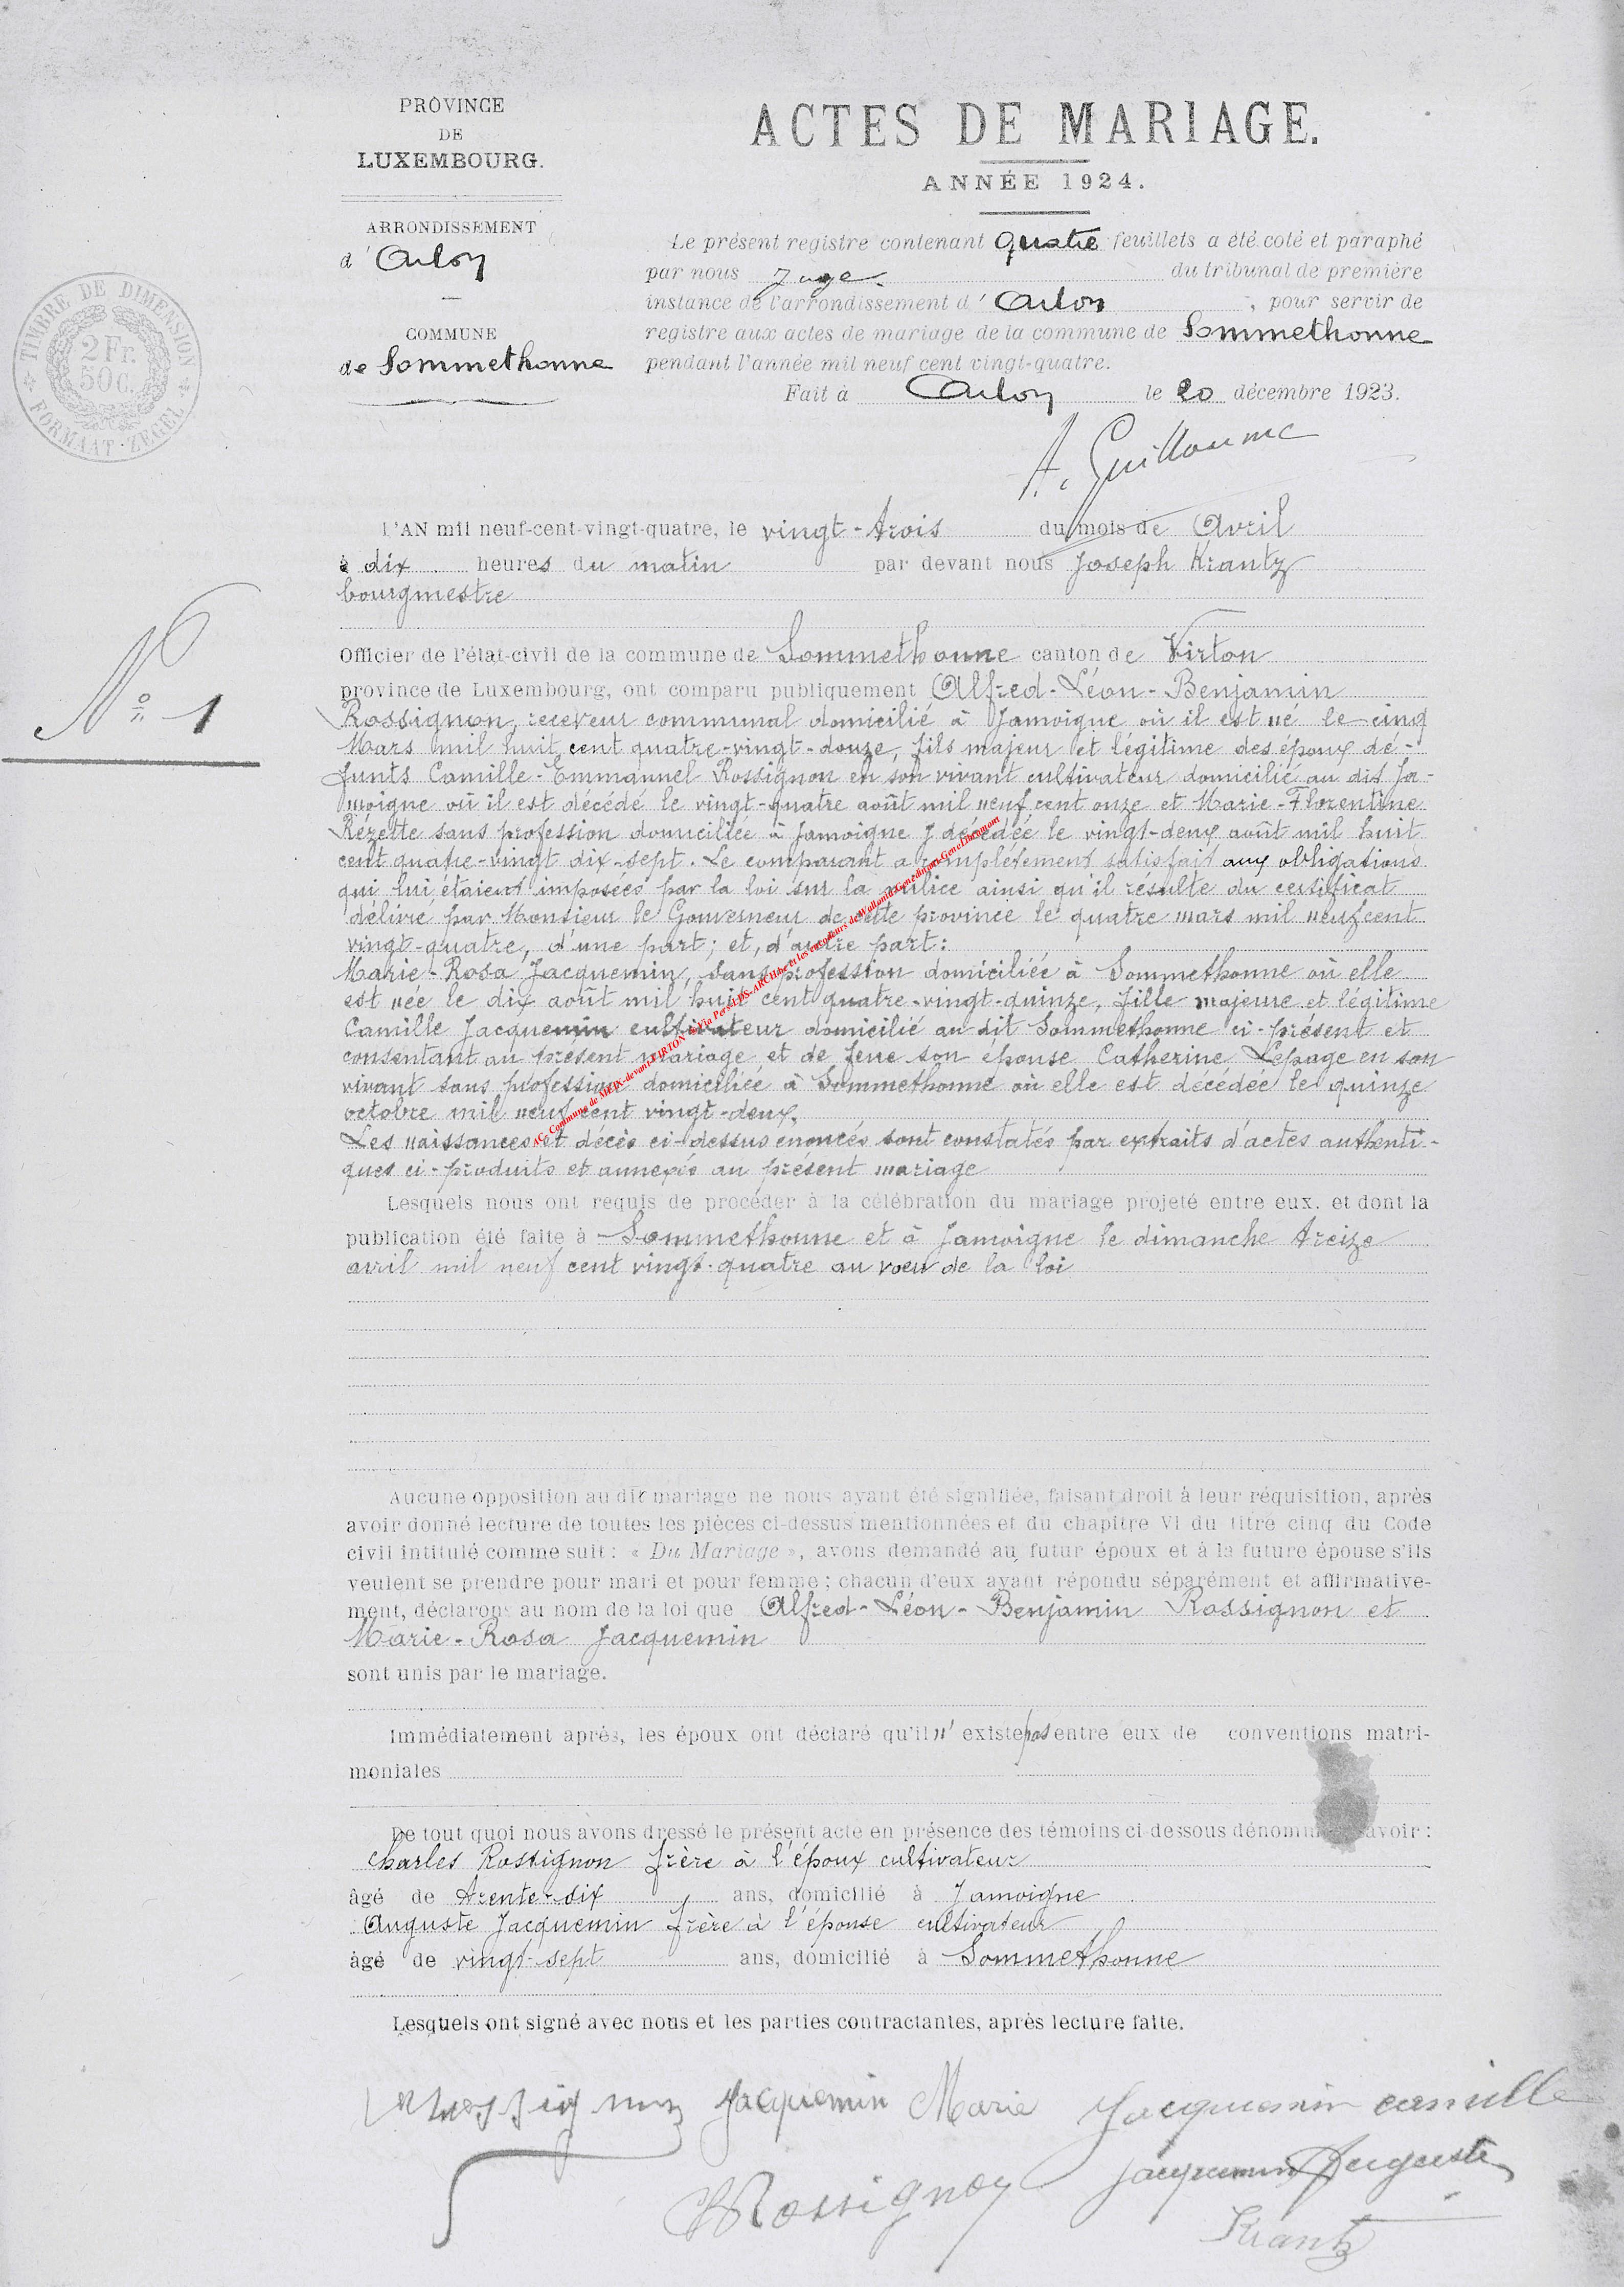 PROVINCE
DE
LUXEMBOURG.
ARRONDISSEMENT
d'Arlon
COMMUNE
de Sommethonne
TIMBRE DE DIMENSION
2 Fr.
50 C.
FORMAAT-ZEGEL
ACTES DE MARIAGE.
ANNÉE 1924.
Le présent registre contenant quatre feuillets a été coté et paraphé
par nous Juge. du tribunal de première
instance de l'arrondissement d'Arlon, pour servir de
registre aux actes de mariage de la commune de Sommethonne
pendant l'année mil neuf cent vingt-quatre.
Fait à Arlon le 20 décembre 1923.
A. Guillaume
N° 1
L'AN mil neuf-cent-vingt-quatre, le vingt-trois du mois de Avril
à dix heures du matin par devant nous Joseph Krantz
bourgmestre
Officier de l'état-civil de la commune de Sommethonne canton de Virton
province de Luxembourg, ont comparu publiquement Alfred-Léon-Benjamin
Rossignon, receveur communal domicilié à Jamoigne où il est né le cinq
Mars mil huit cent quatre-vingt-douze, fils majeur et légitime des époux dé-
funts Camille-Emmanuel Rossignon en son vivant cultivateur domicilié au dit Ja-
moigne où il est décédé le vingt-quatre août mil neuf cent onze et Marie-Florentine
Rézette sans profession domiciliée à Jamoigne y décédée le vingt-deux août mil huit
cent quatre-vingt dix-sept. Le comparant a complétement satisfait aux obligations
qui lui étaient imposées par la loi sur la milice ainsi qu'il résulte du certificat
délivré par Monsieur le Gouverneur de cette province le quatre mars mil neuf cent
vingt-quatre, d'une part; et, d'autre part:
Marie-Rosa Jacquemin, sans profession domiciliée à Sommethonne où elle
est née le dix août mil huit cent quatre-vingt-quinze, fille majeure et légitime
Camille Jacquemin cultivateur domicilié au dit Sommethonne ci-présent et
consentant au présent mariage et de feue son épouse Catherine Lepage en son
vivant sans profession domiciliée à Sommethonne où elle est décédée le quinze
octobre mil neuf cent vingt-deux.
Les naissances et décès ci-dessus énoncés sont constatés par extraits d'actes authenti-
ques ci-produits et annexés au présent mariage
AC Commune de MEIX-devant-VIRTON
Lesquels nous ont requis de procéder à la célébration du mariage projeté entre eux. et dont la
publication été faite à Sommethonne et à Jamoigne le dimanche treize
avril mil neuf cent vingt-quatre au voeu de la loi
Aucune opposition au dit mariage ne nous ayant été signifiée, faisant droit à leur réquisition, après
avoir donné lecture de toutes les pièces ci-dessus mentionnées et du chapitre VI du titre cinq du Code
civil intitulé comme suit: « Du Mariage », avons demandé au futur époux et à la future épouse s'ils
veulent se prendre pour mari et pour femme; chacun d'eux ayant répondu séparément et affirmative-
ment, déclarons au nom de la loi que Alfred-Léon-Benjamin Rossignon et
Marie-Rosa Jacquemin
sont unis par le mariage.
Immédiatement après, les époux ont déclaré qu'il n'existe pas entre eux de conventions matri-
moniales
De tout quoi nous avons dressé le présent acte en présence des témoins ci-dessous dénommés savoir:
Charles Rossignon frère à l'époux cultivateur
âgé de trente-dix ans, domicilié à Jamoigne
Auguste Jacquemin frère à l'épouse cultivateur
âgé de vingt-sept ans, domicilié à Sommethonne
Lesquels ont signé avec nous et les parties contractantes, après lecture faite.
Rossignon Jacquemin Marie Jacquemin camille
Rossignon Jacquemin Auguste
Krantz